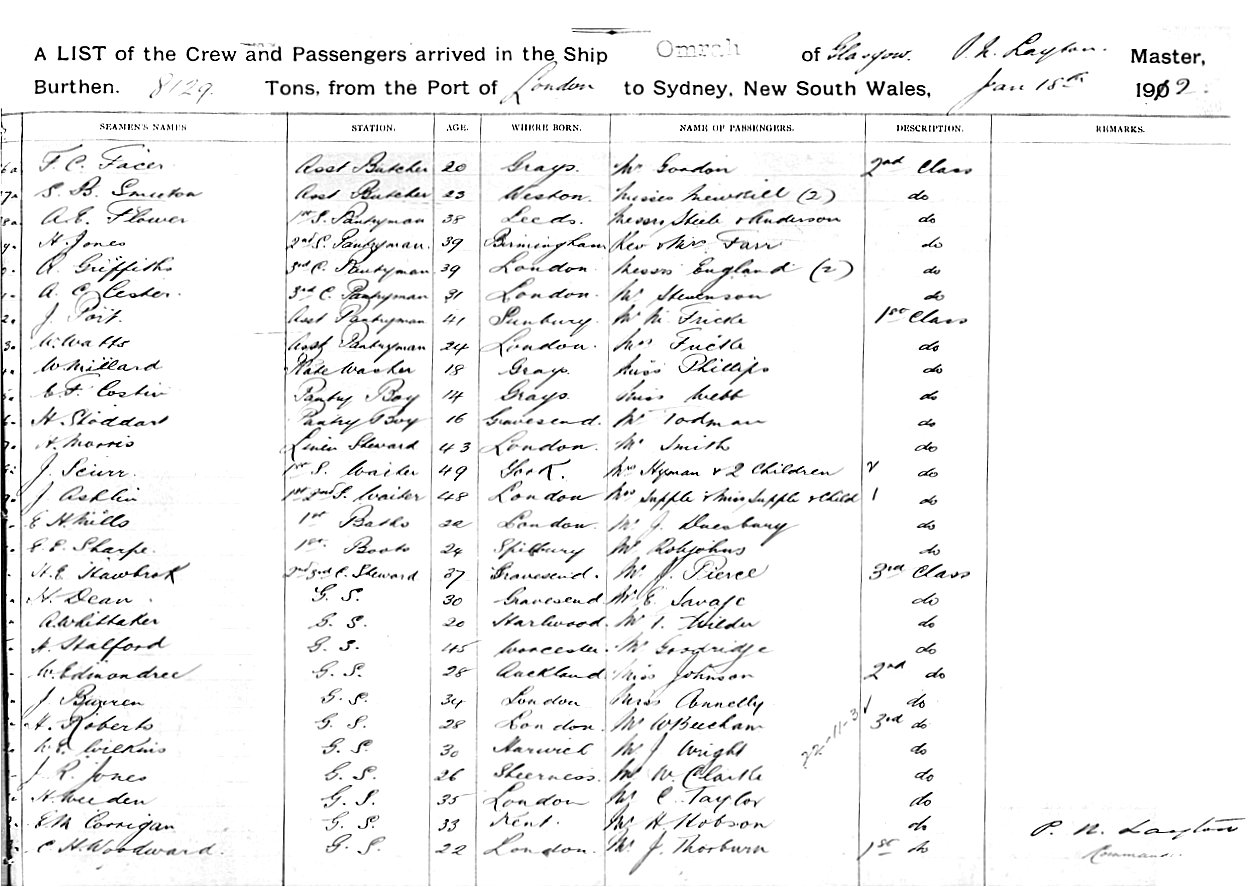 A LIST of the Crew and Passengers arrived in the Ship Omrah of Glasgow. Layton. Master,
Burthen. 8129. Tons, from the Port of London to Sydney, New South Wales, Jan 18th 1912.
SEAMEN'S NAMES STATION. AGE. WHERE BORN. NAME OF PASSENGERS. DESCRIPTION. REMARKS.
F. C. Facer Asst Butcher 20 Grays. Mr Gordon 2nd Class
S. B. Smeeton Asst Butcher 23 Weston. Misses (2) do
A. E. Flower 1st S. Pantryman 38 Leeds. Messrs Steele & Anderson do
H. Jones 2nd S. Pantryman. 39 Birmingham Rev & Mrs Farr do
A. Griffiths 3rd C. Pantryman 39 London. Messrs England (2) do
A. C. Lester. 3rd C. Pantryman 31 London. Mr Stevenson do
J. Port. Asst Pantryman 41 Sunbury. Mr M. Fricke 1st Class
W. Watts Asst Pantryman 24 London. Mrs Fricke do
W Millard Plate Washer 18 Grays. Miss Phillips do
E. F. Costin Pantry Boy 14 Grays. Miss Webb do
H. Stoddart Pantry Boy 16 Gravesend. Mr Todman do
H. Morris Linen Steward 43 London. Mr Smith do
J. Scurr. 1st S. Waiter 49 York. Mrs Hyman & 2 Children do
J Ashlin 1st 2nd S. Waiter 48 London Mrs Supple & Miss Supple & Child 1 do
E H Mills 1st Baths 22 London. Mr J. Duesbury do
E. E. Sharpe. 1st Boots 24 Spilbury Mr Robjohns do
H. E. Hawbrok 2nd 3rd C. Steward 37 Gravesend. Mr J. Pierce 3rd Class
H. Dean. G. S. 30 Gravesend Mr E. Savage do
A. Whittaker G. S. 20 Harlwood. Mr Wilder do
H. Stalford G. S. 45 Worcester. Mr Goodridge do
W. Edmondree G. S. 28 Auckland Miss Johnson 2nd do
J Burren G. S. 34 London Miss Connelly do
H. Roberts G. S. 28 London. Mr W Beecham 3rd do
Wilkins G. S. 30 Harwich Mr J Wright do
J. R. Jones G. S. 26 Sheerness. Mr W. Clarke do
H. Weeden G. S. 35 London Mr C. Taylor do
E. M Corrigan G. S. 33 Kent. Mr H Hobson do P. N. Layton
C H Woodward. G. S. 22 London. Mr J. Thorburn 1st do Commander.